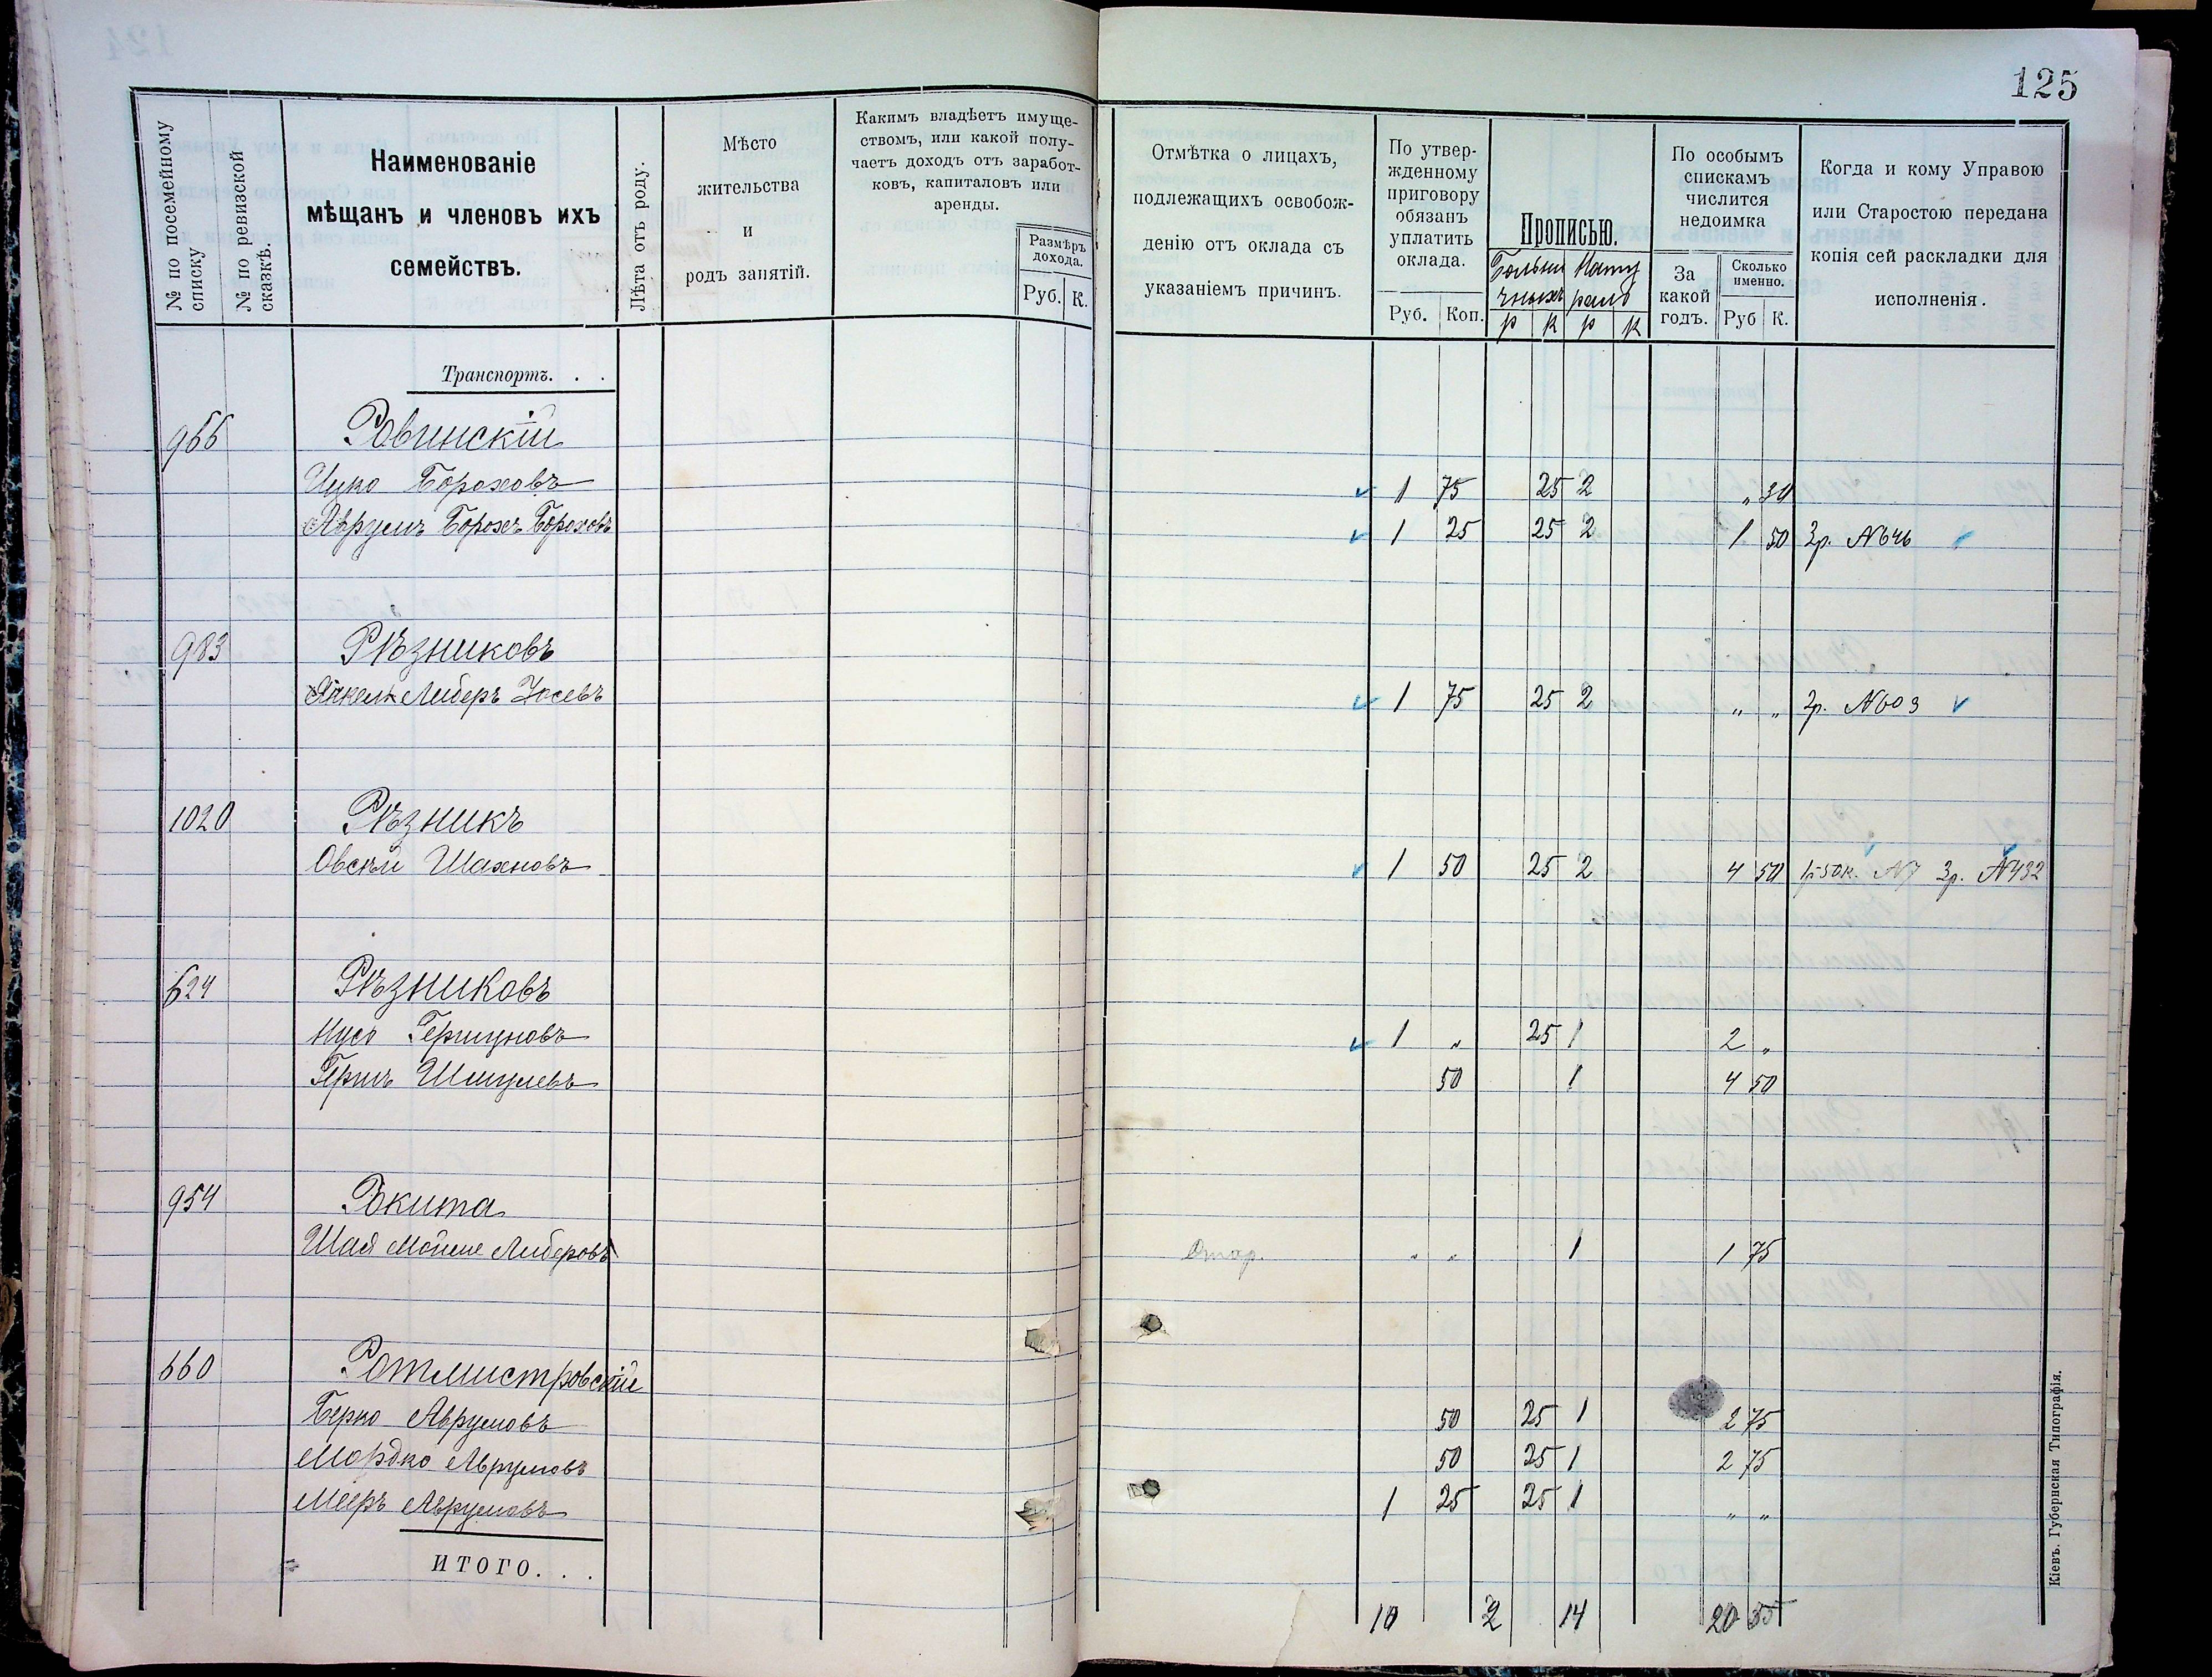 125
№ по посемейному
списку
№ по ревизской
сказкѣ.
Наименованіе
мѣщанъ и членовъ ихъ
семействъ.
Лѣта отъ роду.
Мѣсто
жительства
и
родъ занятій.
Какимъ владѣетъ имуще-
ствомъ, или какой полу-
чаетъ доходъ отъ заработ-
ковъ, капиталовъ или
аренды.
Размѣръ
дохода.
Руб. К.
Отмѣтка о лицахъ,
подлежащихъ освобож-
денію отъ оклада съ
указаніемъ причинъ.
По утвер-
жденному
приговору
обязанъ
уплатить
оклада.
Руб. Коп.
Прописью.
Больни Нату
чныхъ ралъ
р к р к
По особымъ
спискамъ
числится
недоимка
За
какой
годъ.
Сколько
именно.
Руб К.
Когда и кому Управою
или Старостою передана
копія сей раскладки для
исполненія.
Транспортъ. . .
966 Ровинскій
Ицко Бороховъ 1 75 25 2 „ 30
Аврумъ Борохъ Бороховъ 1 25 25 2 1 50 3р. №646
983 Рѣзниковъ
Янкель Либеръ Іосевъ 1 75 25 2 „ „ 3р. №603
1020 Рѣзникъ
Овсѣй Шахновъ 1 50 25 2 4 50 1р50к. №7 3р. №432
624 Рѣзниковъ
Нусъ Гершуновъ 1 „ 25 1 2 „
Гершъ Шмулевъ 50 1 4 50
954 Рокита
Шая Мойше Либеровъ „ „ 1 1 75
660 Ротмистровскіе
Берко Аврумовъ 50 25 1 2 75
Мордко Аврумовъ 50 25 1 2 75
Мееръ Аврумовъ 1 25 25 1 „ „
ИТОГО. . .
10 2 14 20 55
Кіевъ. Губернская Типографія.